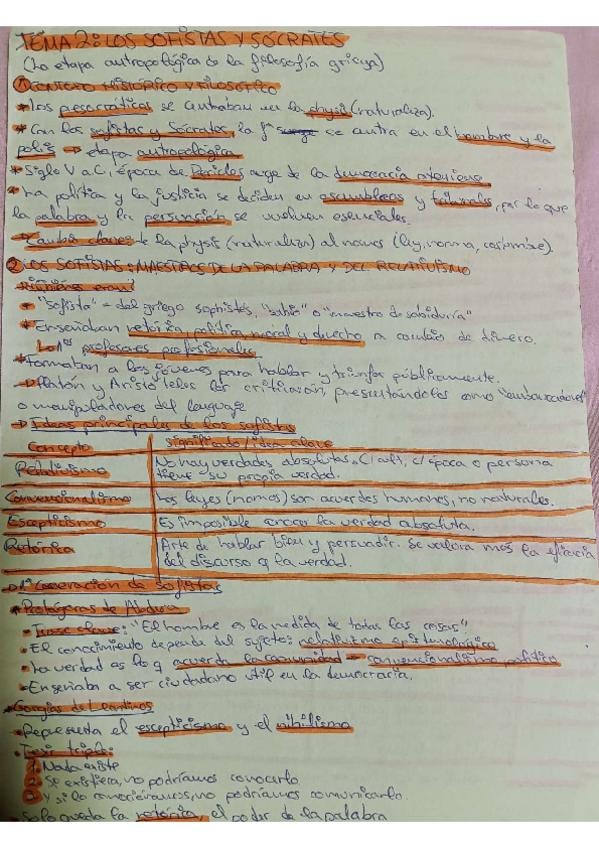 TEMA 2: LOS SOFISTAS Y SÓCRATES
(La etapa antropológica de la filosofía griega)
1 CONTEXTO HISTÓRICO Y FILOSÓFICO
* Los presocráticos se centraban en la physis (naturaleza).
* Con los sofistas y Sócrates, la fª surge se centra en el hombre y la
polis → etapa antropológica
* Siglo V a.C, época de Pericles auge de la democracia ateniense
* La política y la justicia se deciden en asambleas y tribunales, por lo que
la palabra y la persuasión se vuelven esenciales.
→ Cambio clave: de la physis (naturaleza) al nomos (ley, norma, costumbre).
2 LOS SOFISTAS: MAESTROS DE LA PALABRA Y DEL RELATIVISMO
¿Quiénes eran?
• "Sofista" = del griego sophistés, "sabio" o "maestro de sabiduría"
* Enseñaban retórica, política, moral y derecho a cambio de dinero.
↳ 1ºs profesores profesionales
* Formaban a los jóvenes para hablar y triunfar públicamente.
→ Platón y Aristóteles los criticaron, presentándolos como "embaucadores"
o manipuladores del lenguaje
→ Ideas principales de los sofistas
Concepto significado / idea clave
Relativismo No hay verdades absolutas. C/ cult, c/ época o persona
tiene su propia verdad.
Convencionalismo Las leyes (nomos) son acuerdos humanos, no naturales.
Escepticismo Es imposible conocer la verdad absoluta.
Retórica Arte de hablar bien y persuadir. Se valora más la eficacia
del discurso q la verdad.
→ 1ª Generación de Sofistas
* Protágoras de Abdera
• Frase clave: "El hombre es la medida de todas las cosas"
• El conocimiento depende del sujeto: relativismo epistemológico
• La verdad es lo q acuerda la comunidad → convencionalismo político
• Enseñaba a ser ciudadano útil en la democracia.
* Gorgias de Leontinos
• Representa el escepticismo y el nihilismo
• Tesis triple:
1. Nada existe
2. Si existiera, no podríamos conocerlo
3. Y si lo conociéramos, no podríamos comunicarlo.
• Solo queda la retórica, el poder de la palabra